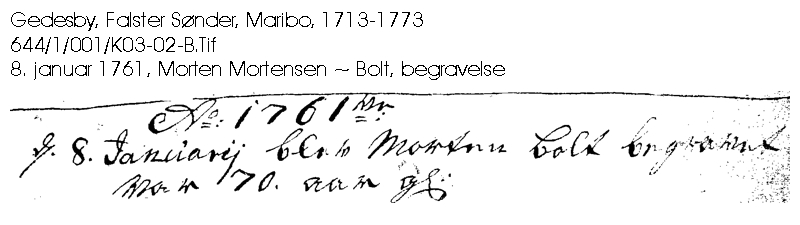 Gedesby, Falster Sønder, Maribo, 1713-1773
644/1/001/K03-02-B.Tif
8. januar 1761, Morten Mortensen ~ Bolt, begravelse
Ao: 1761
d. 8. Januarij blev Morten Bolt begravet
var 70. aar gl: